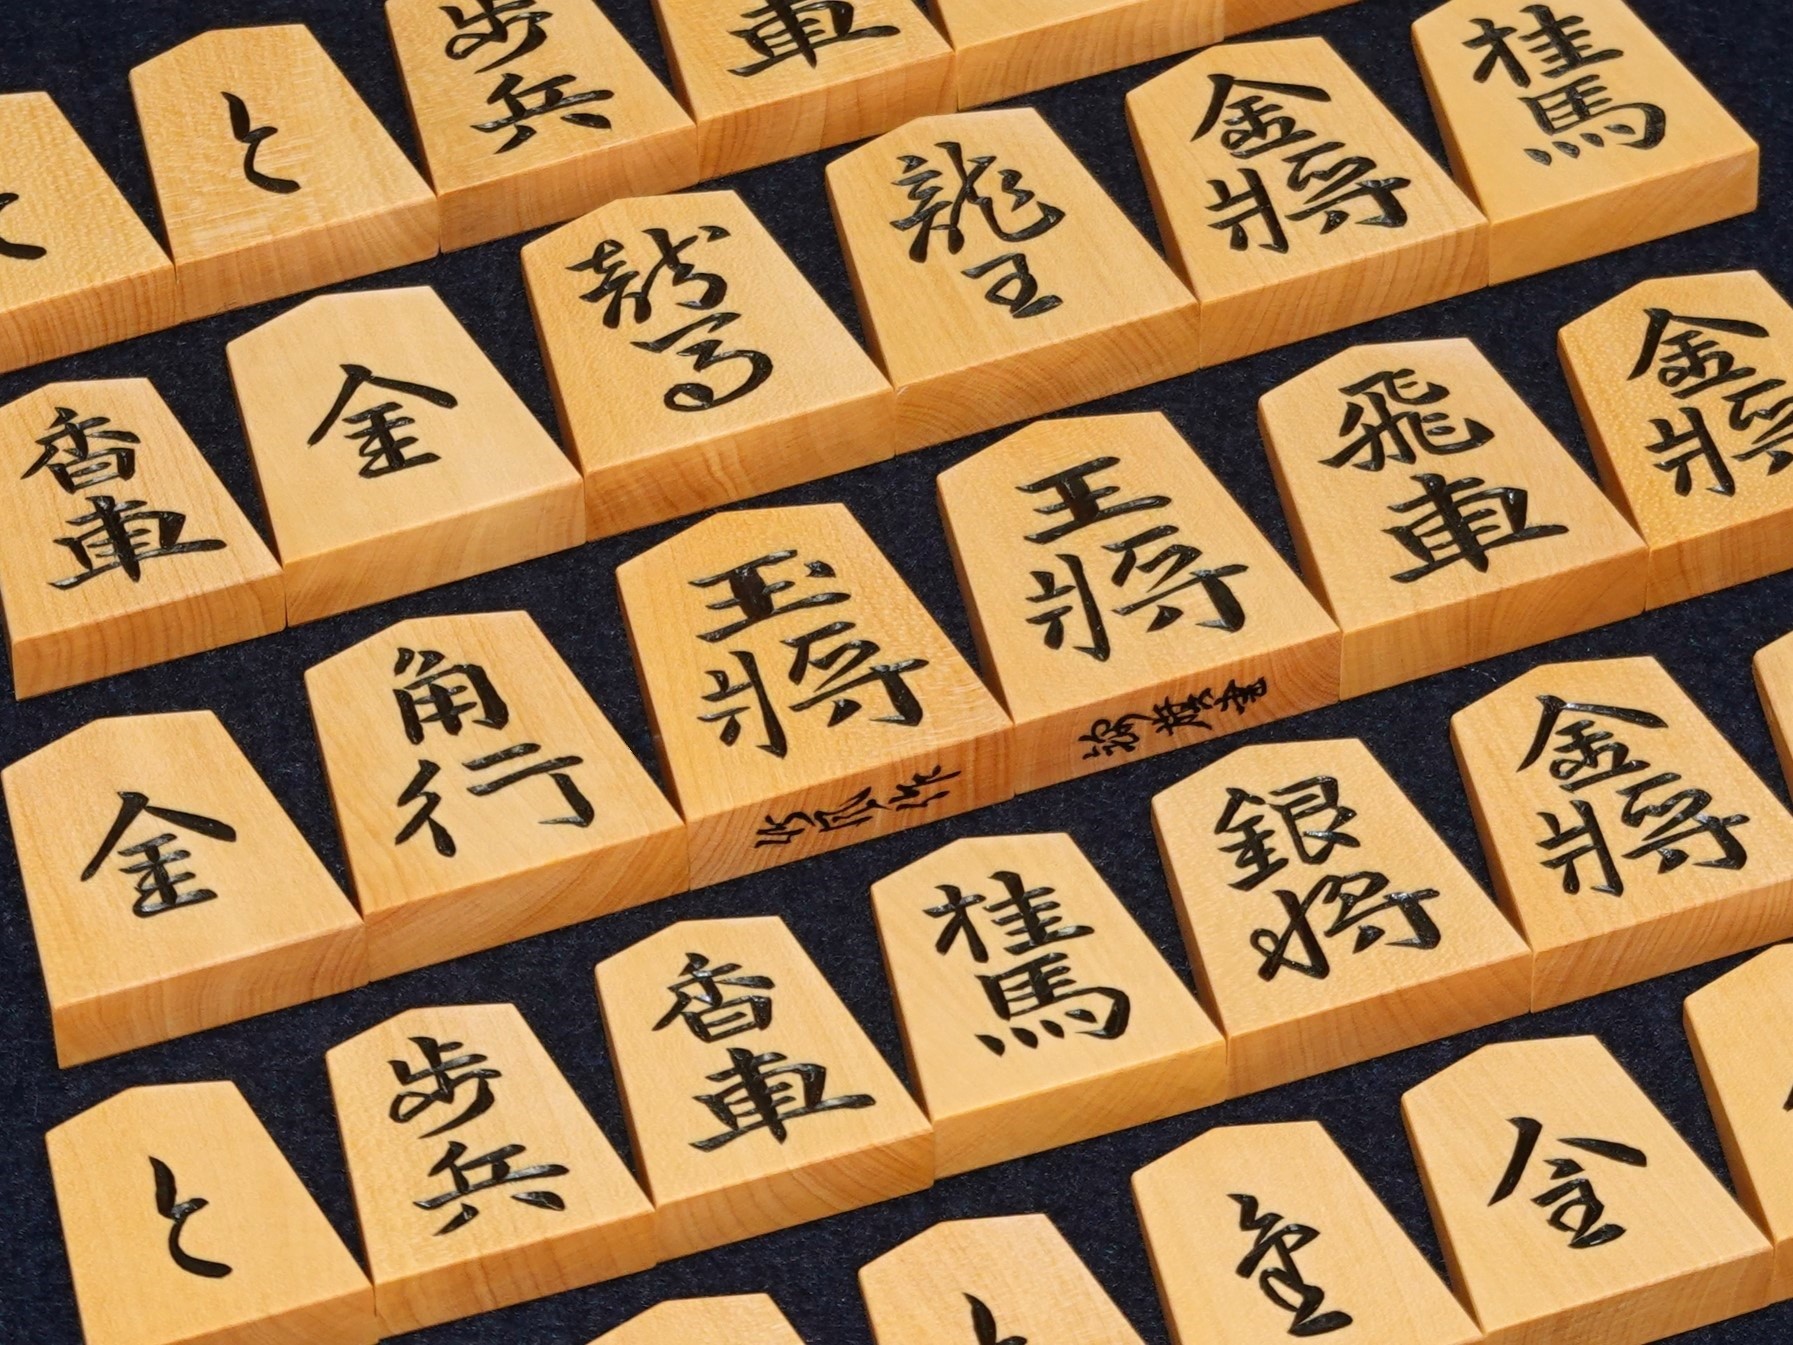 と
歩兵
車
金将
桂馬
龍馬
龍王
香車
金
玉将
王将
飛車
金将
金
角行
桂馬
銀将
金将
と
歩兵
香車
全
と